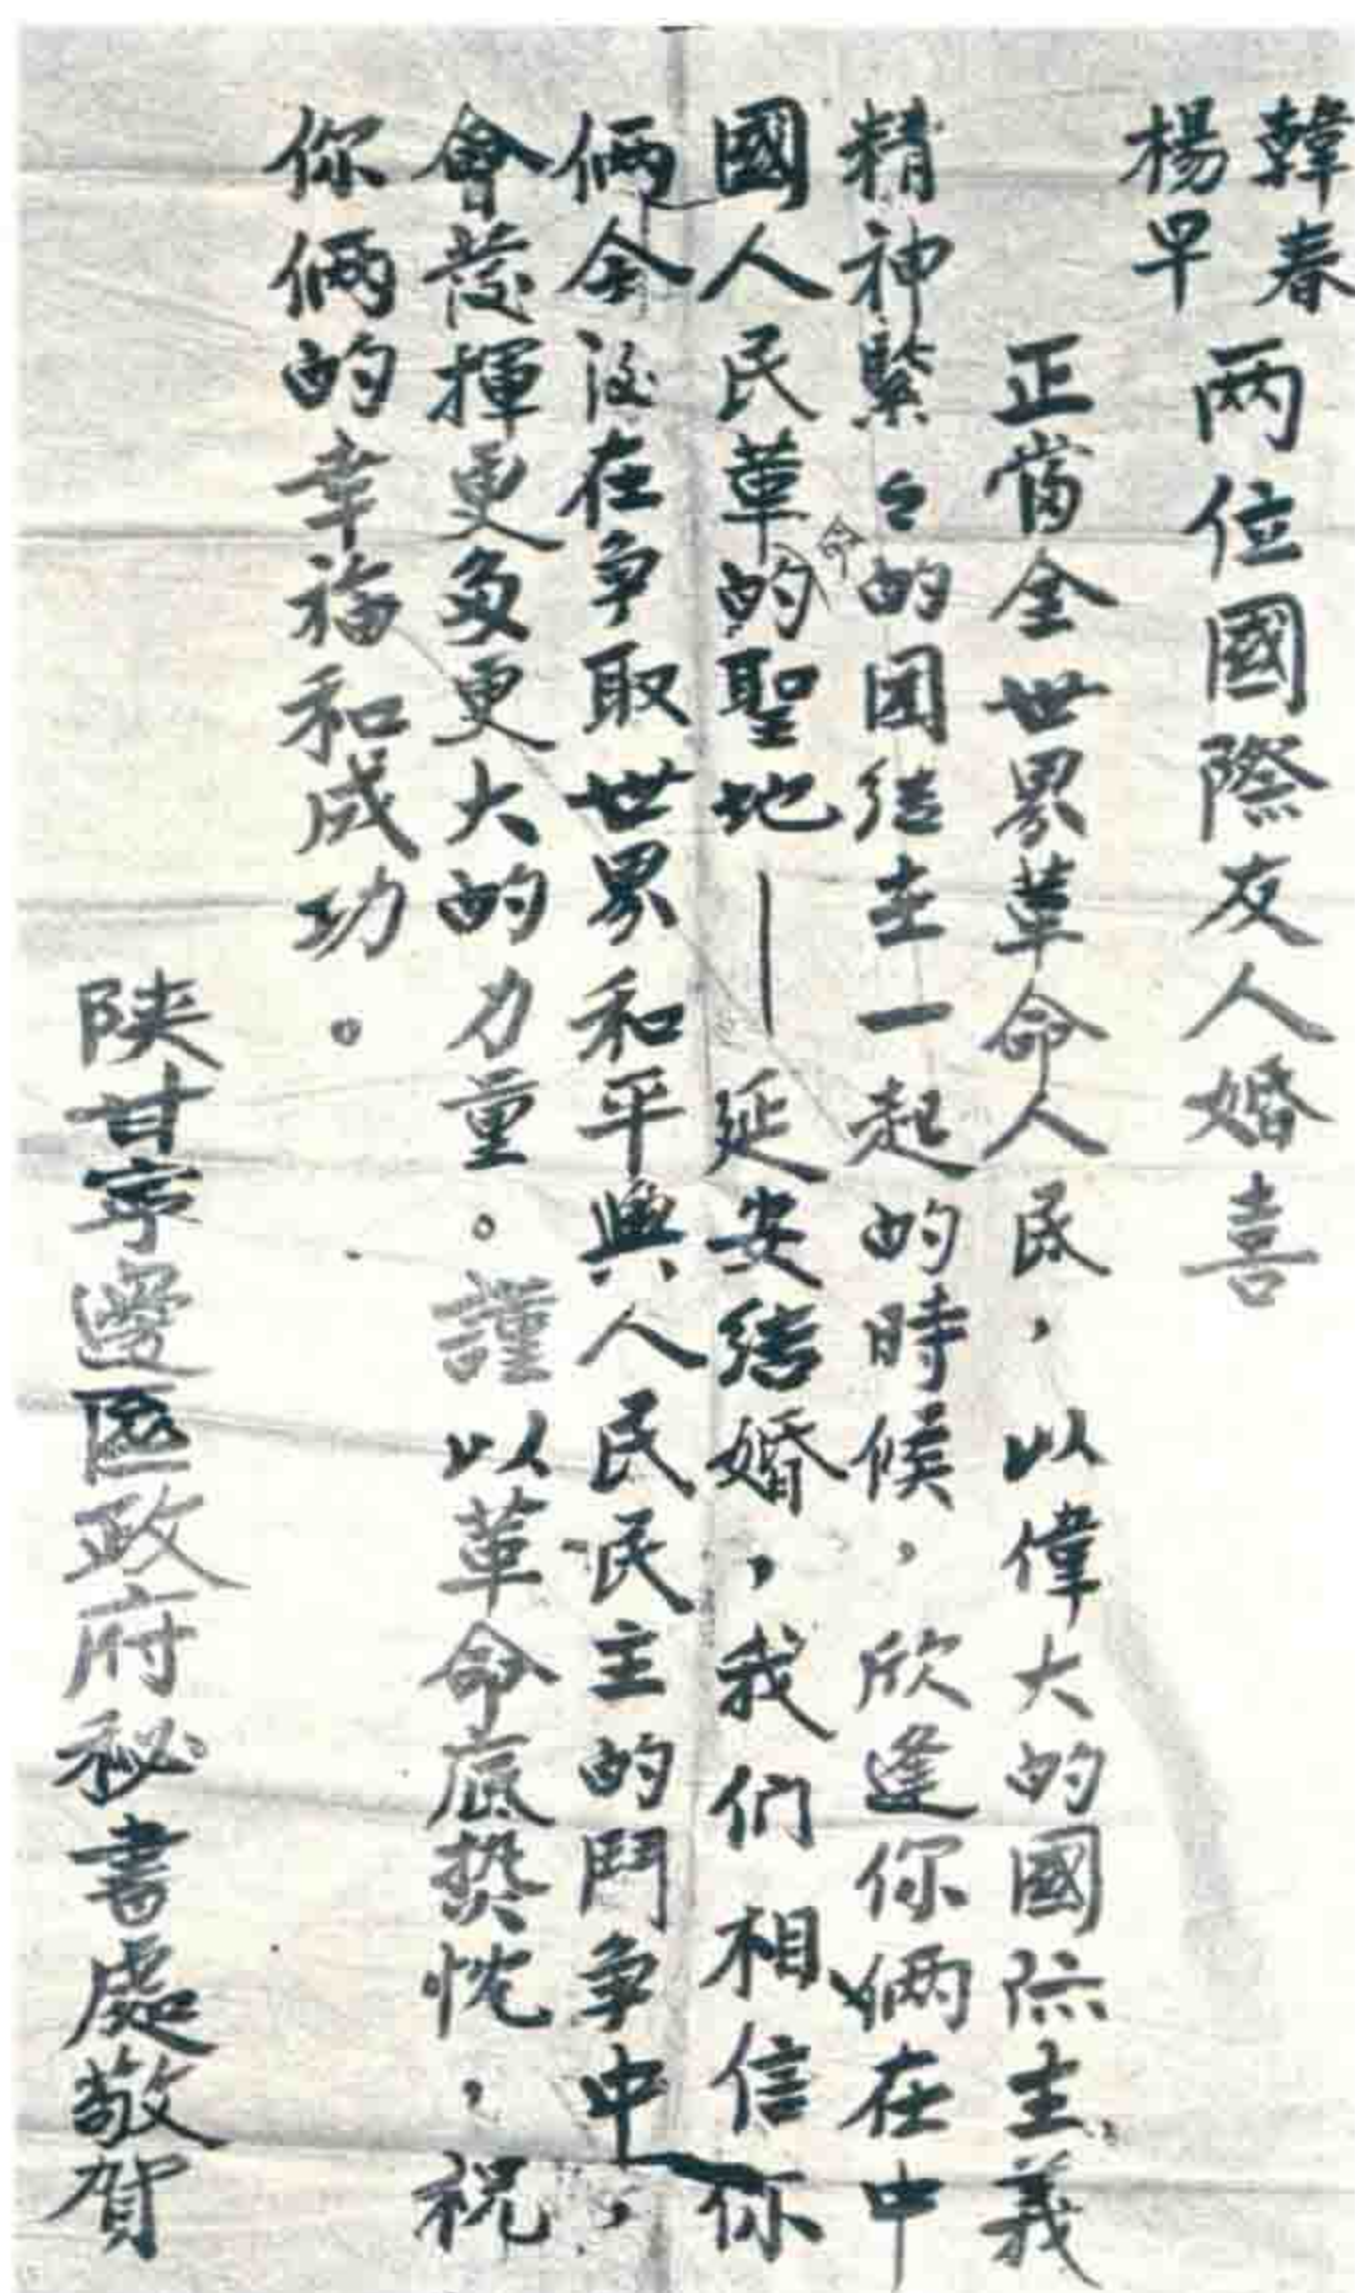 韓春
楊早
两位國際友人婚喜
正當全世界革命人民，以偉大的國际主義
精神緊々的团结在一起的時候，欣逢你俩在中
國人民革命的聖地——延安结婚，我们相信你
俩今后在争取世界和平與人民民主的鬥争中，
會發揮更多更大的力量。謹以革命底热忱，祝
你俩的幸福和成功。
陕甘寧邊区政府秘書處敬賀